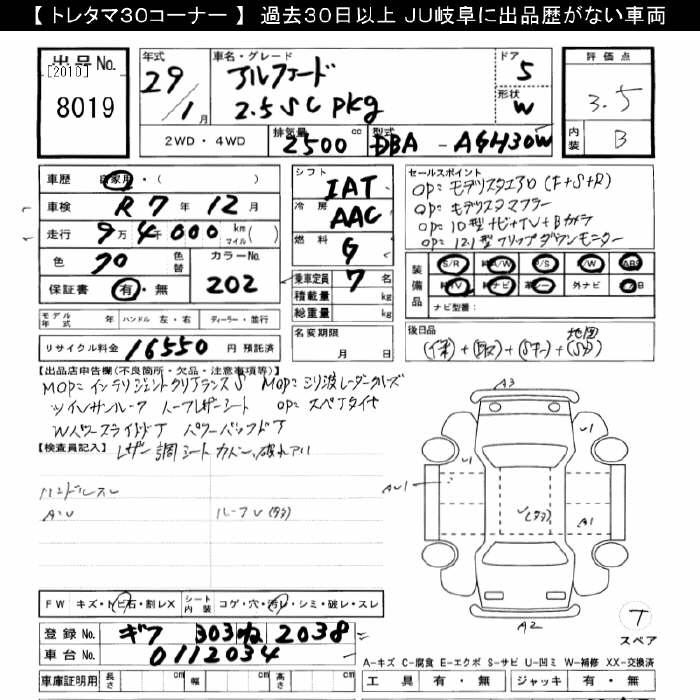 【 トレタマ30コーナー 】 過去30日以上 JU岐阜に出品歴がない車両
出品 No.
[2010]
8019
年式
29/1月
車名・グレード
アルファード
2.5SC pkg
ドア
5
形状
W
評価点
3.5
内装
B
2WD・4WD
排気量 2500 cc
型式 DBA - AGH30W
車歴 自家用・( )
車検 R 7 年 12 月
走行 9万4千000 km マイル( )
色 70 色替
カラーNo. 202
保証書 有・無
シフト
IAT
冷房
AAC
燃料
G
乗車定員 7 名
積載量 kg
総重量 kg
セールスポイント
OP=モデリスタエアロ (F+S+R)
OP=モデリスタマフラー
OP=10型ナビ+TV+Bカメラ
OP=12.1型フリップダウンモニター
装備品
S/R 純A/W P/S P/W ABS
純TV 純ナビ 革シート 外ナビ
ナビ型番:
モデル年式 年 ハンドル 左・右 ディーラー・並行
リサイクル料金 16550 円 預託済
名変期限
月 日
後日品
地図
【出品店申告欄(不良箇所・欠品・注意事項等)】
MOP=インテリジェントクリアランスS MOP=ミリ波レーダークルーズ
ツインサンルーフ ハーフレザーシート OP=スペアタイヤ
Wパワースライドドア パワーバックドア
【検査員記入】 レザー調シートカバー、破れアリ
ハンドルスレ
A・U
ルーフU(多多)
A3
U1
U1
AU1
U(多多)
A1
A2
T
スペア
FW キズ・トビ石・割レX シート内装 コゲ・穴・汚レ・シミ・破レ・スレ
登録 No. ギフ 303 ね 2038
車台 No. 0112034
A-キズ C-腐食 E-エクボ S-サビ U-凹ミ W-補修 XX-交換済
車庫証明用 長さ cm 幅 cm 高さ cm
工具 有・無 ジャッキ 有・無